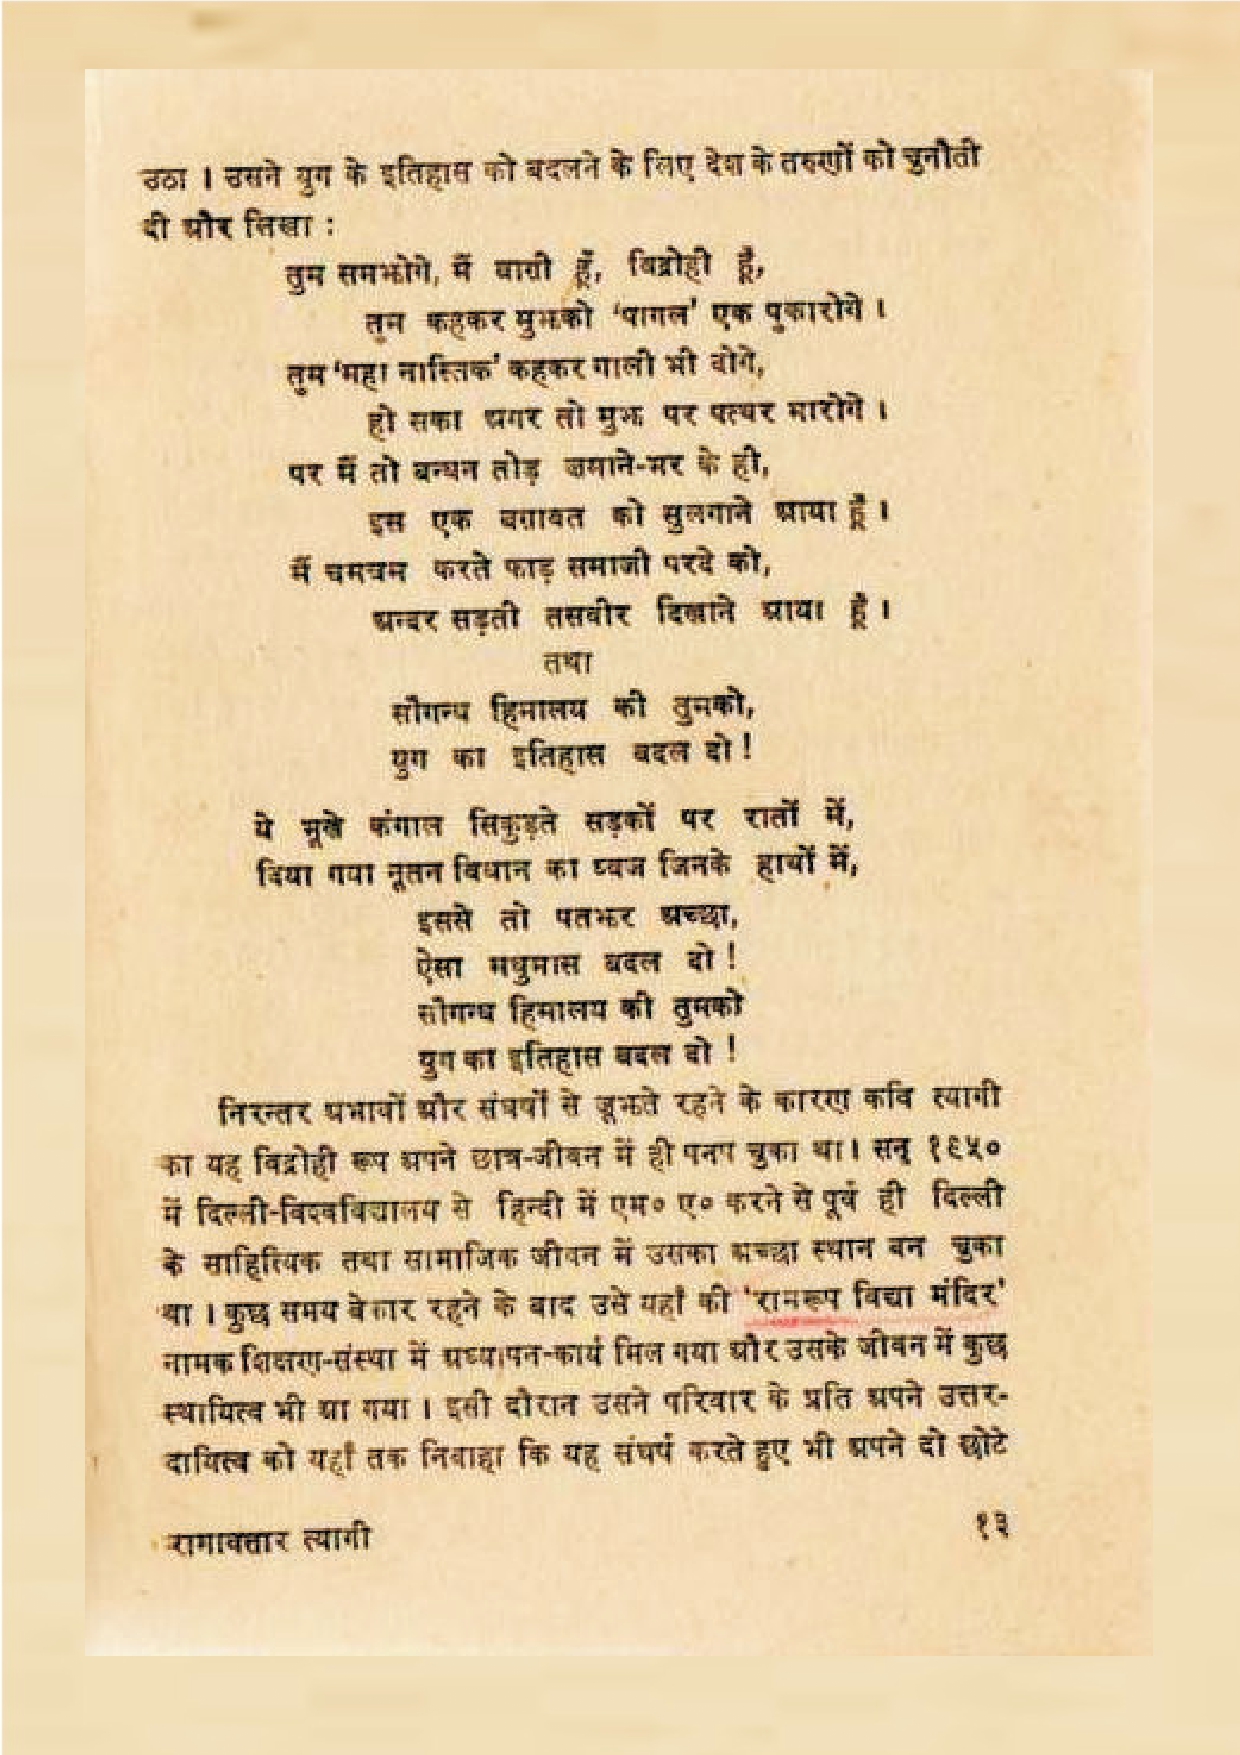 उठा । उसने युग के इतिहास को बदलने के लिए देश के तरुणों को चुनौती
दी और लिखा :
तुम समझोगे, मैं बाग़ी हूँ, विद्रोही हूँ,
तुम कहकर मुझको 'पागल' एक पुकारोगे ।
तुम 'महा नास्तिक' कहकर गाली भी दोगे,
हो सका अगर तो मुझ पर पत्थर मारोगे ।
पर मैं तो बन्धन तोड़ ज़माने-भर के ही,
इस एक बग़ावत को सुलगाने आया हूँ ।
मैं चमचम करते फाड़ समाजी परदे को,
अन्दर सड़ती तसवीर दिखाने आया हूँ ।
तथा
सौगन्ध हिमालय की तुमको,
युग का इतिहास बदल दो !
ये भूखे कंगाल सिकुड़ते सड़कों पर रातों में,
दिया गया नूतन विधान का ध्वज जिनके हाथों में,
इससे तो पतझर अच्छा,
ऐसा मधुमास बदल दो !
सौगन्ध हिमालय की तुमको
युग का इतिहास बदल दो !
निरन्तर अभावों और संघर्षों से जूझते रहने के कारण कवि त्यागी
का यह विद्रोही रूप अपने छात्र-जीवन में ही पनप चुका था। सन् १९५०
में दिल्ली-विश्वविद्यालय से हिन्दी में एम० ए० करने से पूर्व ही दिल्ली
के साहित्यिक तथा सामाजिक जीवन में उसका अच्छा स्थान बन चुका
था । कुछ समय बेकार रहने के बाद उसे यहाँ की 'रामरूप विद्या मंदिर'
नामक शिक्षण-संस्था में अध्यापन-कार्य मिल गया और उसके जीवन में कुछ
स्थायित्व भी आ गया । इसी दौरान उसने परिवार के प्रति अपने उत्तर-
दायित्व को यहाँ तक निबाहा कि यह संघर्ष करते हुए भी अपने दो छोटे
रामावतार त्यागी
१३